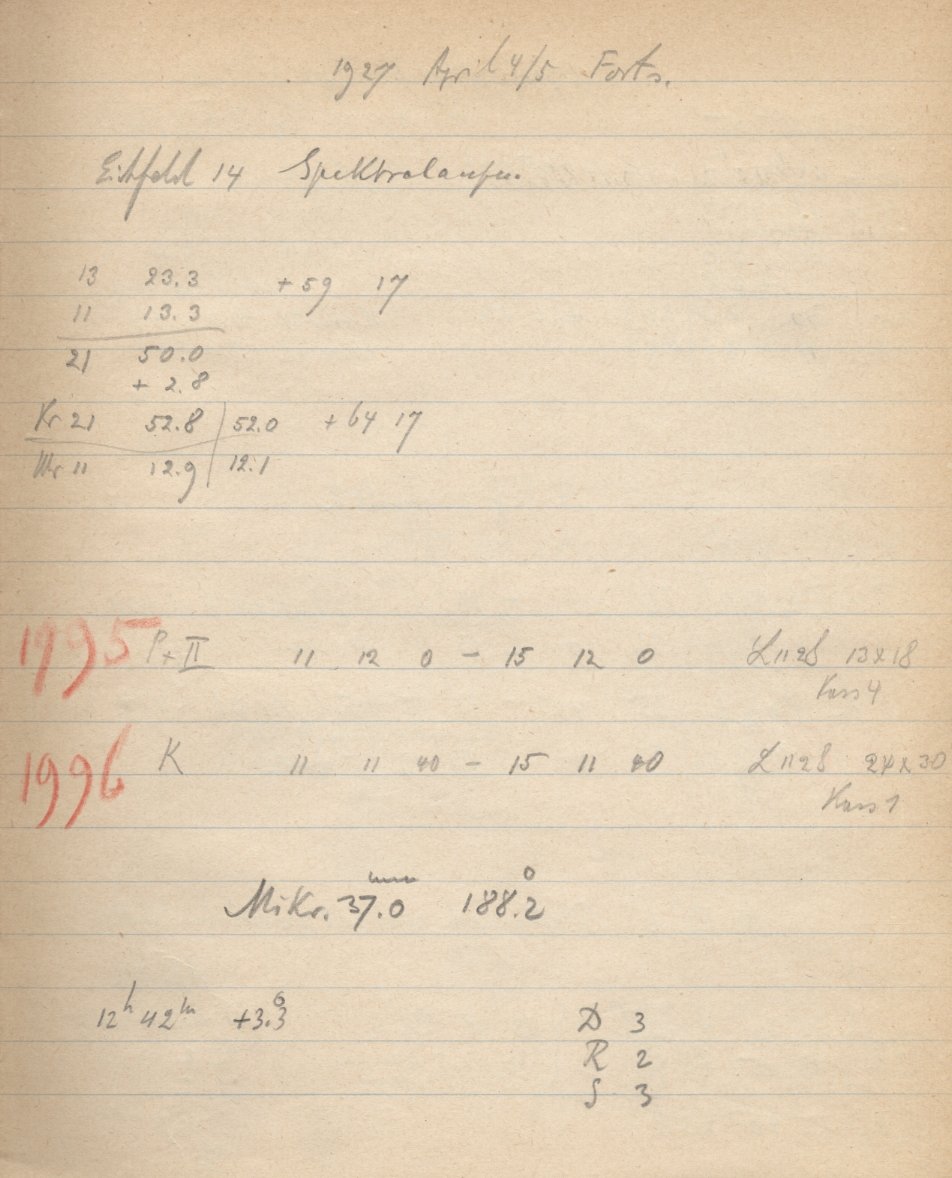 1927 April 4/5 Forts.
Eichfeld 14 Spektralaufn.
13 23.3 +59 17
11 13.3
21 50.0
+ 2.8
Kr 21 52.8 | 52.0 +64 17
Wr 11 12.9 | 12.1
1995 P+II 11 12 0 - 15 12 0 L 1128 13x18
Kass 4
1996 K 11 11 40 - 15 11 40 L 1128 24x30
Kass 1
Mikr. 37.0 mm 188.2°
12h 42m +3.3°
D 3
R 2
S 3